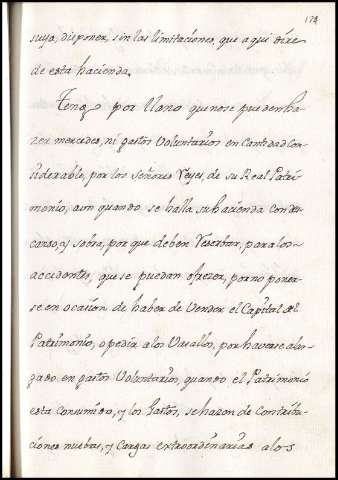 173
suya, disponer, sin las limitaciones, que aqui dire
de esta hacienda.
Tengo por llano que no se pueden ha-
zer mercedes, ni gastos Voluntarios en Cantidad con-
siderable, por los señores Reyes, de su Real Patri-
monio, aun quando se halla su hacienda con des-
canso, y sobra, por que deben Reserbar, para los
accidentes, que se puedan ofrezer, por no poner-
se en ocasion de haber de Vender el Capital del
Patrimonio, o pedir a los Vasallos, por haverse alar-
gado, en gastos Voluntarios, quando el Patrimonio
esta Consumido, y los Gastos, se hazen de Contribu-
ciones nuebas, y Cargas extraordinarias a los